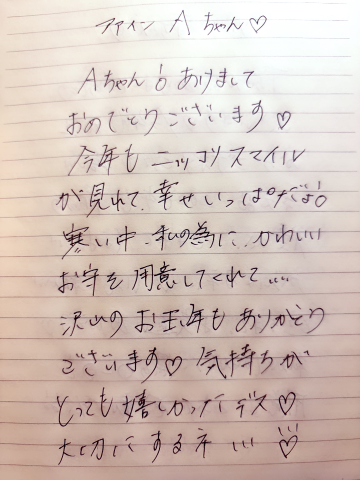 ファイン Aちゃん♡
Aちゃん!あけまして
おめでとうございます♡
今年も ニッコリスマイル
が見れて、幸せいっぱいだよ!
寒い中、私の為に、かわいい
お守を用意してくれて....
沢山のお玉年もありがとう
ございます♡ 気持ちが
とっても嬉しかったデス♡
大切にするネ...♡